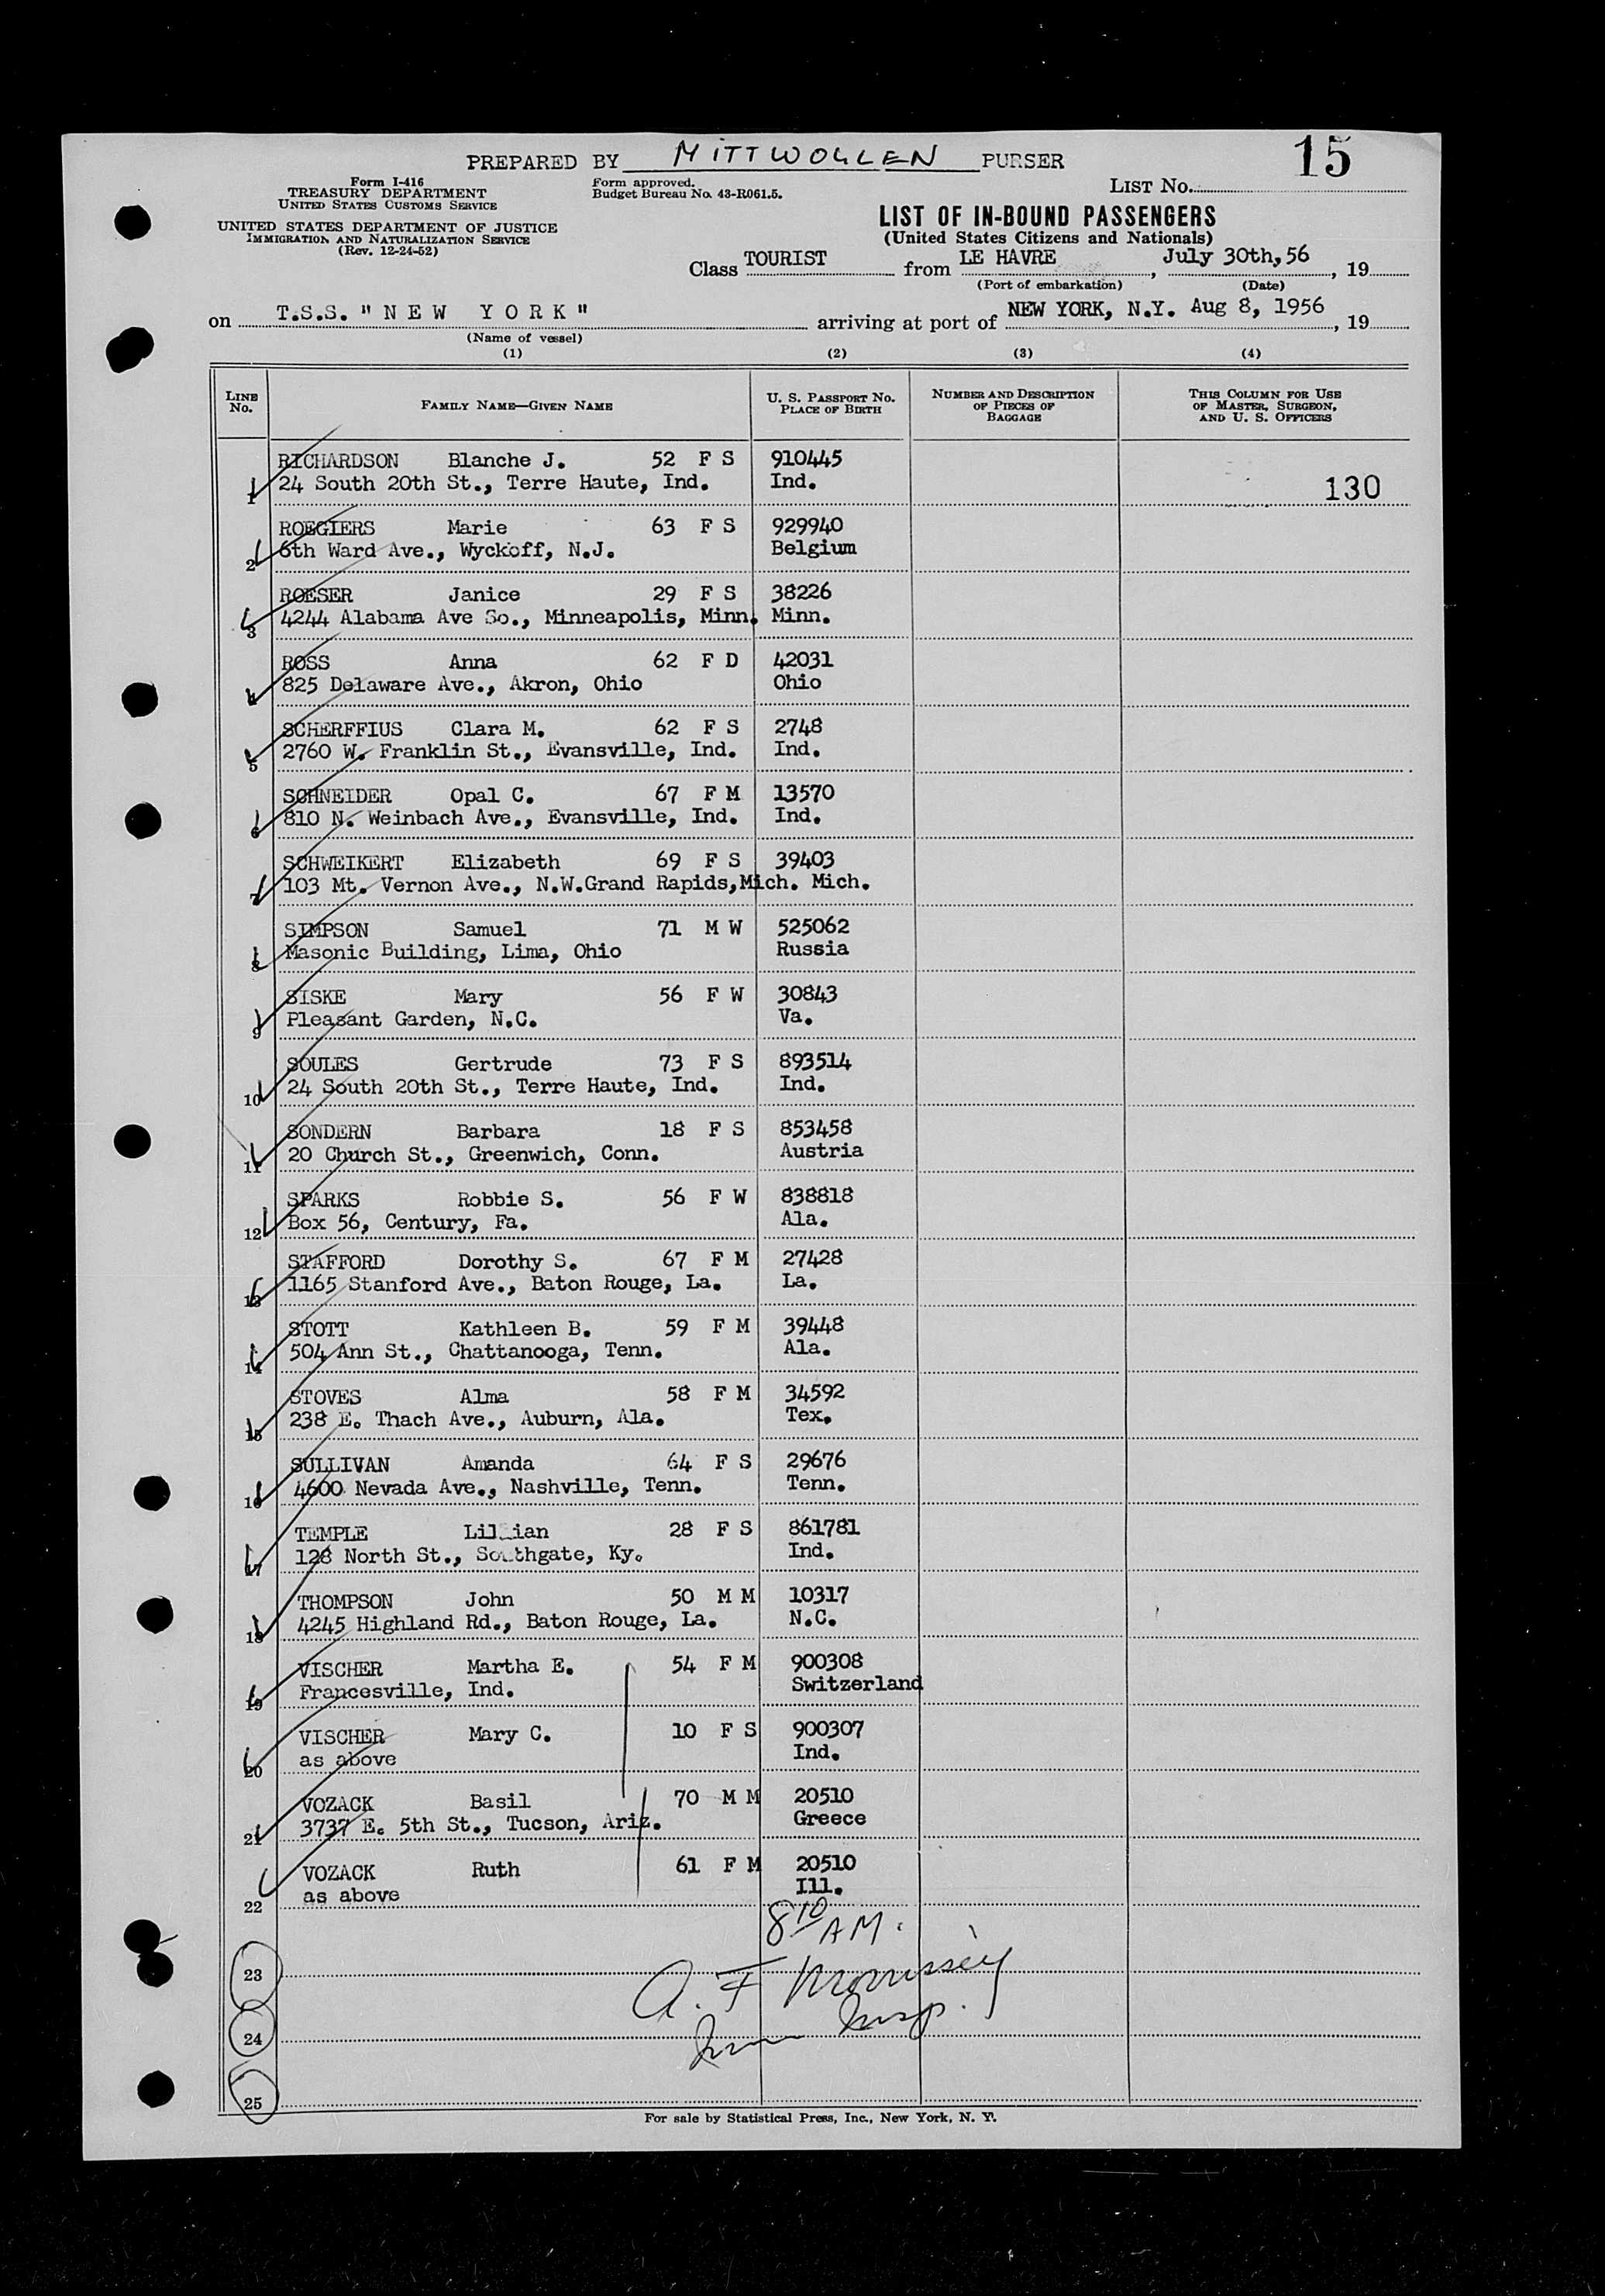 PREPARED BY MITTWOLLEN PURSER
15
Form I-416
TREASURY DEPARTMENT
UNITED STATES CUSTOMS SERVICE
UNITED STATES DEPARTMENT OF JUSTICE
IMMIGRATION AND NATURALIZATION SERVICE
(Rev. 12-24-52)
Form approved.
Budget Bureau No. 43-R061.5.
LIST No.
LIST OF IN-BOUND PASSENGERS
(United States Citizens and Nationals)
Class TOURIST from LE HAVRE, July 30th, 56, 19
(Port of embarkation) (Date)
on T.S.S. "NEW YORK" arriving at port of NEW YORK, N.Y. Aug 8, 1956, 19
(Name of vessel)
(1) (2) (3) (4)
LINE No.
FAMILY NAME—GIVEN NAME
U. S. PASSPORT No.
PLACE OF BIRTH
NUMBER AND DESCRIPTION
OF PIECES OF
BAGGAGE
THIS COLUMN FOR USE
OF MASTER, SURGEON,
AND U. S. OFFICERS
RICHARDSON Blanche J. 52 F S 910445
1 24 South 20th St., Terre Haute, Ind. Ind. 130
ROEGIERS Marie 63 F S 929940
2 6th Ward Ave., Wyckoff, N.J. Belgium
ROESER Janice 29 F S 38226
3 4244 Alabama Ave So., Minneapolis, Minn. Minn.
ROSS Anna 62 F D 42031
4 825 Delaware Ave., Akron, Ohio Ohio
SCHERFFIUS Clara M. 62 F S 2748
5 2760 W. Franklin St., Evansville, Ind. Ind.
SCHNEIDER Opal C. 67 F M 13570
6 810 N. Weinbach Ave., Evansville, Ind. Ind.
SCHWEIKERT Elizabeth 69 F S 39403
7 103 Mt. Vernon Ave., N.W.Grand Rapids,Mich. Mich.
SIMPSON Samuel 71 M W 525062
8 Masonic Building, Lima, Ohio Russia
SISKE Mary 56 F W 30843
9 Pleasant Garden, N.C. Va.
SOULES Gertrude 73 F S 893514
10 24 South 20th St., Terre Haute, Ind. Ind.
SONDERN Barbara 18 F S 853458
11 20 Church St., Greenwich, Conn. Austria
SPARKS Robbie S. 56 F W 838818
12 Box 56, Century, Fa. Ala.
STAFFORD Dorothy S. 67 F M 27428
13 1165 Stanford Ave., Baton Rouge, La. La.
STOTT Kathleen B. 59 F M 39448
14 504 Ann St., Chattanooga, Tenn. Ala.
STOVES Alma 58 F M 34592
15 238 E. Thach Ave., Auburn, Ala. Tex.
SULLIVAN Amanda 64 F S 29676
16 4600 Nevada Ave., Nashville, Tenn. Tenn.
TEMPLE Lillian 28 F S 861781
17 128 North St., Southgate, Ky. Ind.
THOMPSON John 50 M M 10317
18 4245 Highland Rd., Baton Rouge, La. N.C.
VISCHER Martha E. 54 F M 900308
19 Francesville, Ind. Switzerland
VISCHER Mary C. 10 F S 900307
20 as above Ind.
VOZACK Basil 70 M M 20510
21 3737 E. 5th St., Tucson, Ariz. Greece
VOZACK Ruth 61 F M 20510
22 as above Ill.
8 10 AM.
23 A. F Morrissey
24 Imm Insp.
25
For sale by Statistical Press, Inc., New York, N. Y.